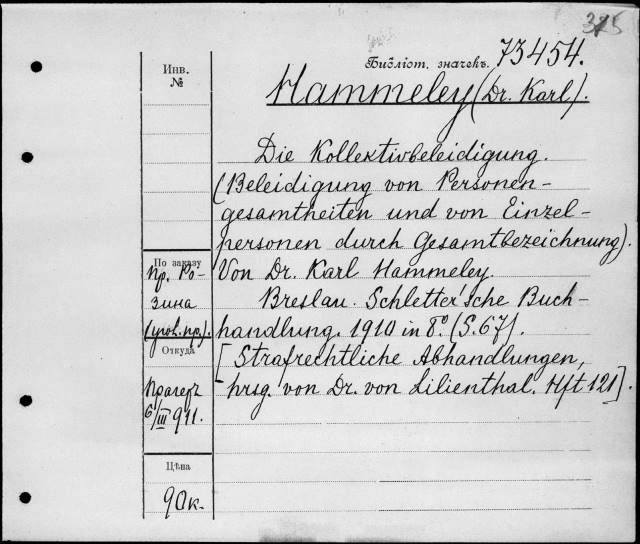 325
Библіот. значекъ. 73454.
Инв.
№
Hammeley (Dr. Karl).
Die Kollektivbeleidigung.
(Beleidigung von Personen-
gesamtheiten und von Einzel-
personen durch Gesamtbezeichnung).
Von Dr. Karl Hammeley.
Breslau. Schletter'sche Buch-
handlung. 1910 in 8º. (S. 67).
[Strafrechtliche Abhandlungen,
hrsg. von Dr. von Lilienthal. Hft 121].
По заказу
Пр. Ро-
зина
(угол. пр.).
Откуда
Прагеръ
6/III 911.
Цѣна
90 к.